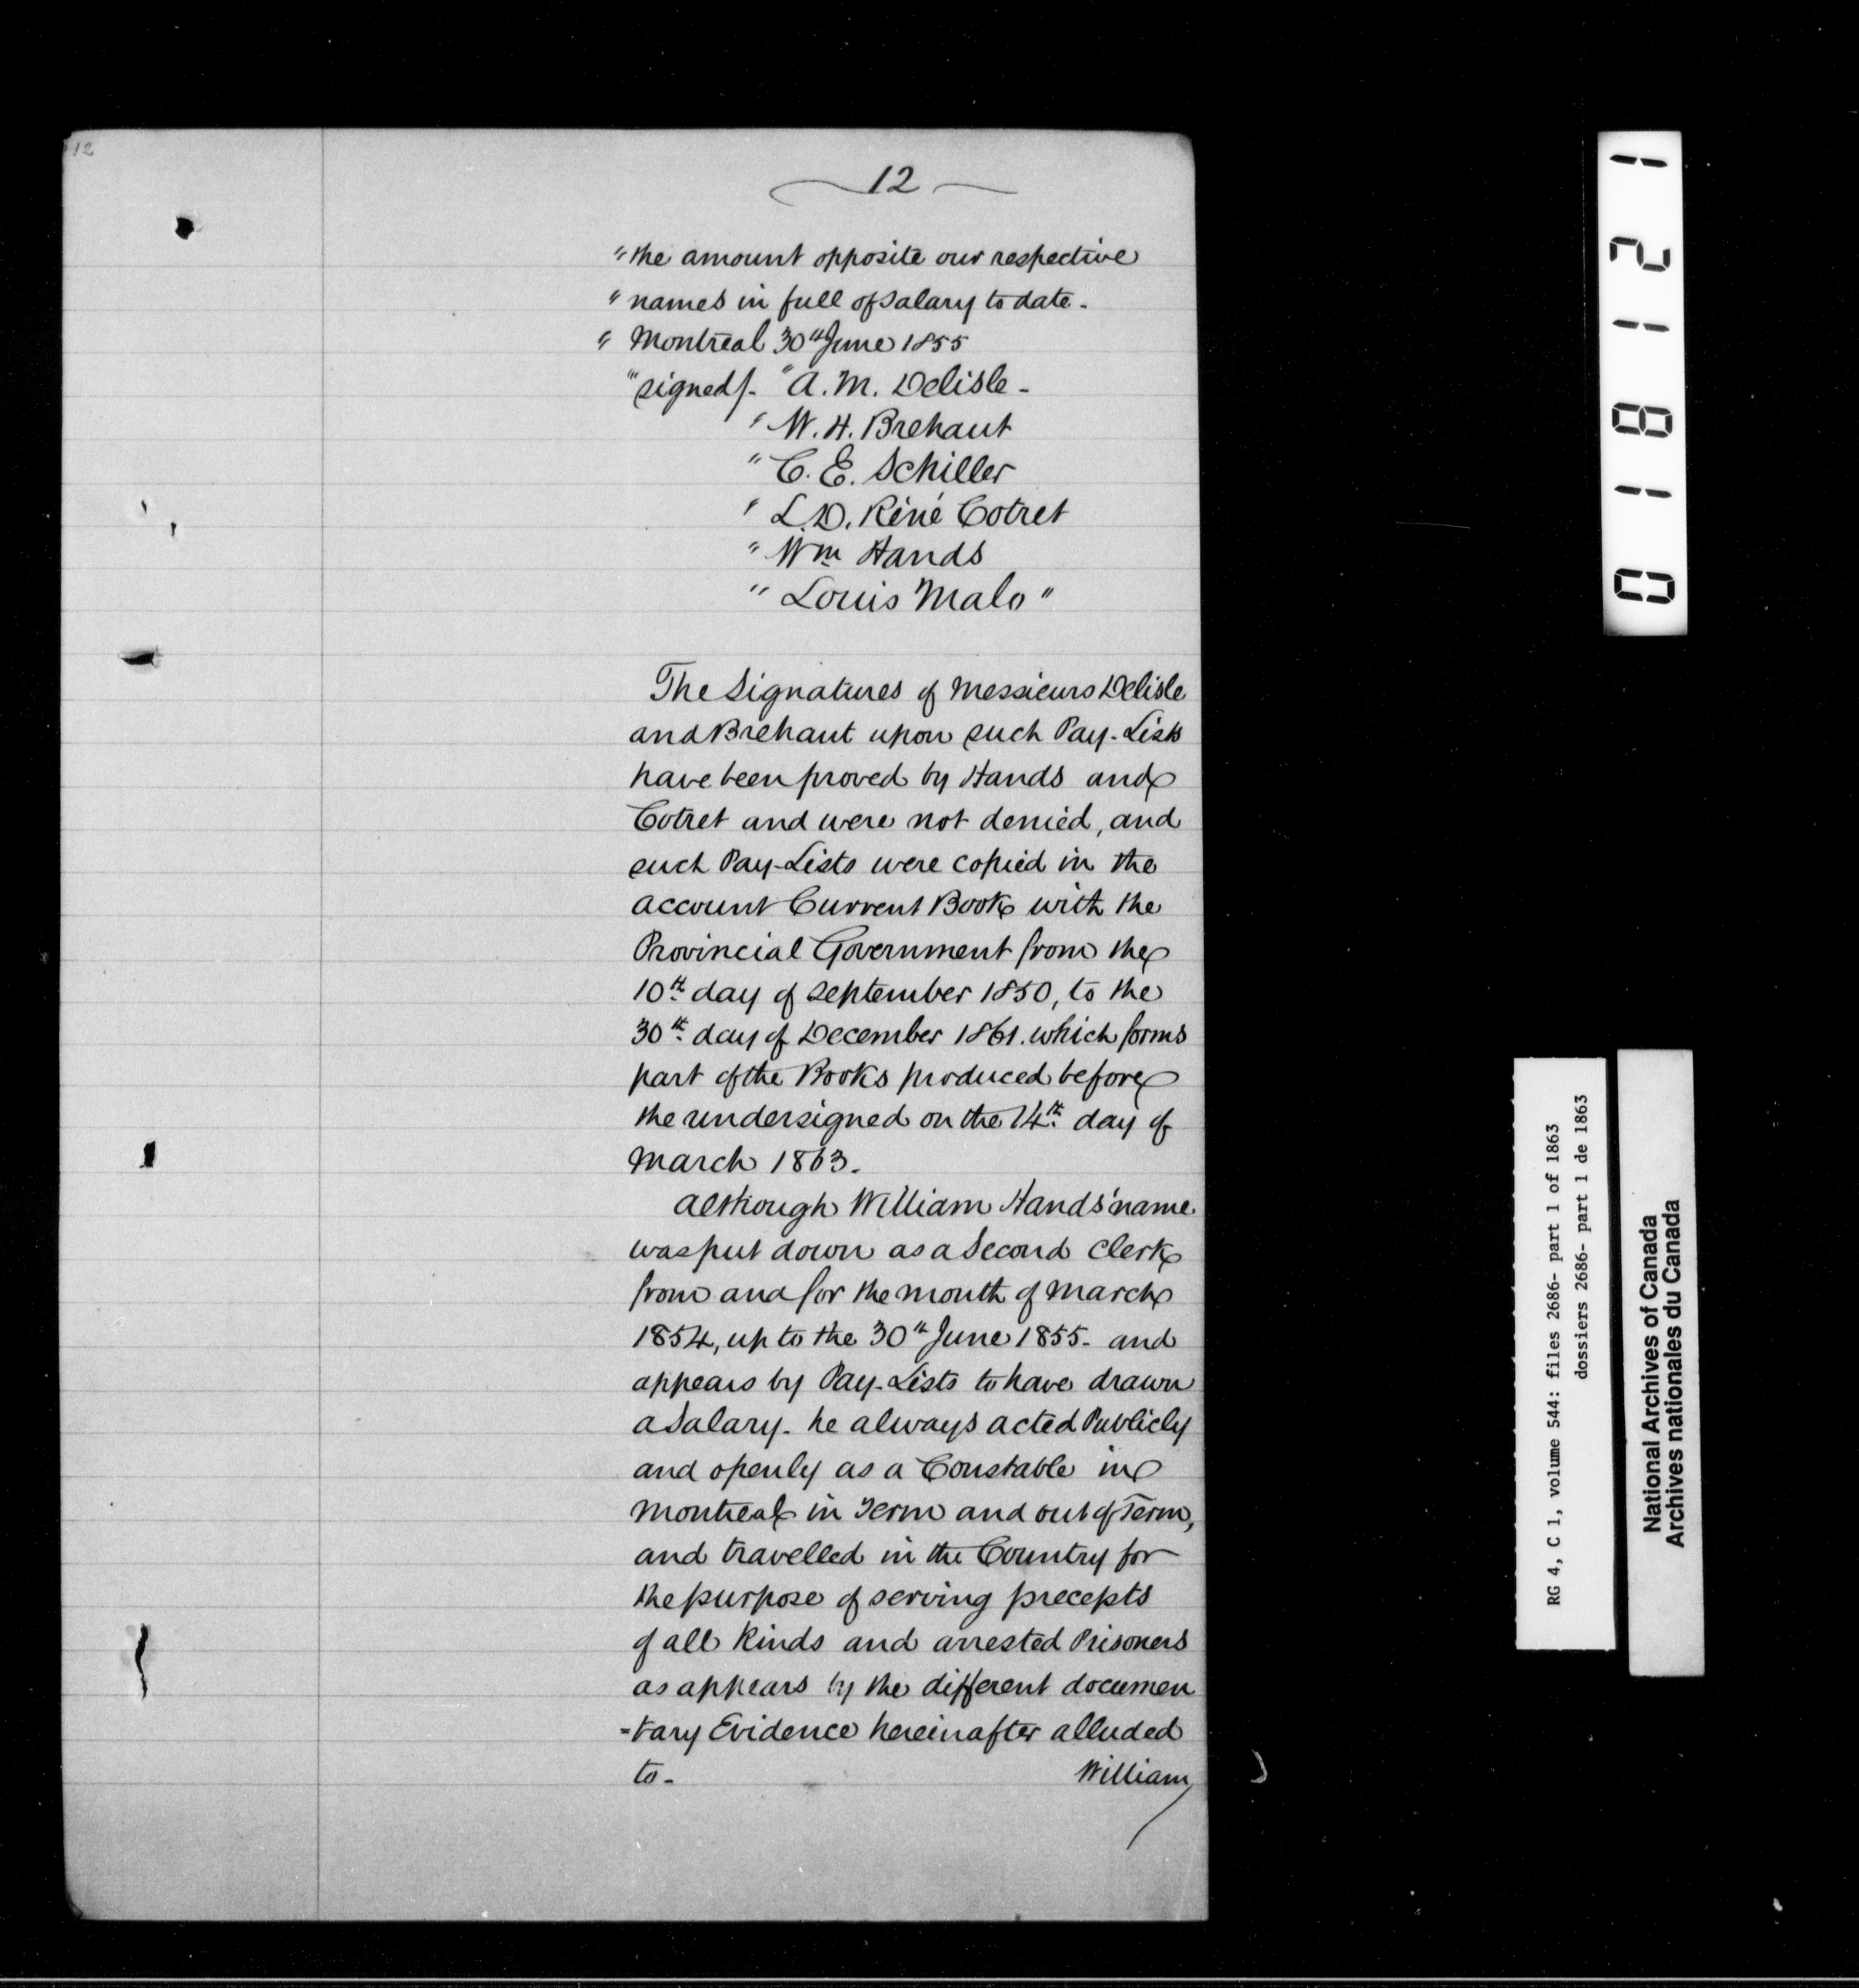 12
12
"the amount opposite our respective
"names in full of salary to date.
" Montreal 30th June 1855
"signed/. "A. M. Delisle -
" W. H. Brehaut
" C. E. Schiller
" L. D. Réné Cotret
" Wm Hands
" Louis Malo"
The Signatures of Messieurs Delisle
and Brehaut upon such Pay-Lists
have been proved by Hands and
Cotret and were not denied, and
such Pay-Lists were copied in the
account Current Book with the
Provincial Government from the
10th day of September 1850, to the
30th day of December 1861. which forms
part of the Books produced before
the undersigned on the 14th day of
March 1863.
Although William Hands' name
was put down as a Second Clerk
from and for the month of March
1854, up to the 30th June 1855. and
appears by Pay-Lists to have drawn
a Salary. he always acted Publicly
and openly as a Constable in
Montreal in Term and out of Term,
and travelled in the Country for
the purpose of serving precepts
of all Kinds and arrested Prisoners
as appears by the different documen
=tary Evidence hereinafter alluded
to -
William
018121
RG 4, C 1, volume 544: files 2686- part 1 of 1863
dossiers 2686- part 1 de 1863
National Archives of Canada
Archives nationales du Canada